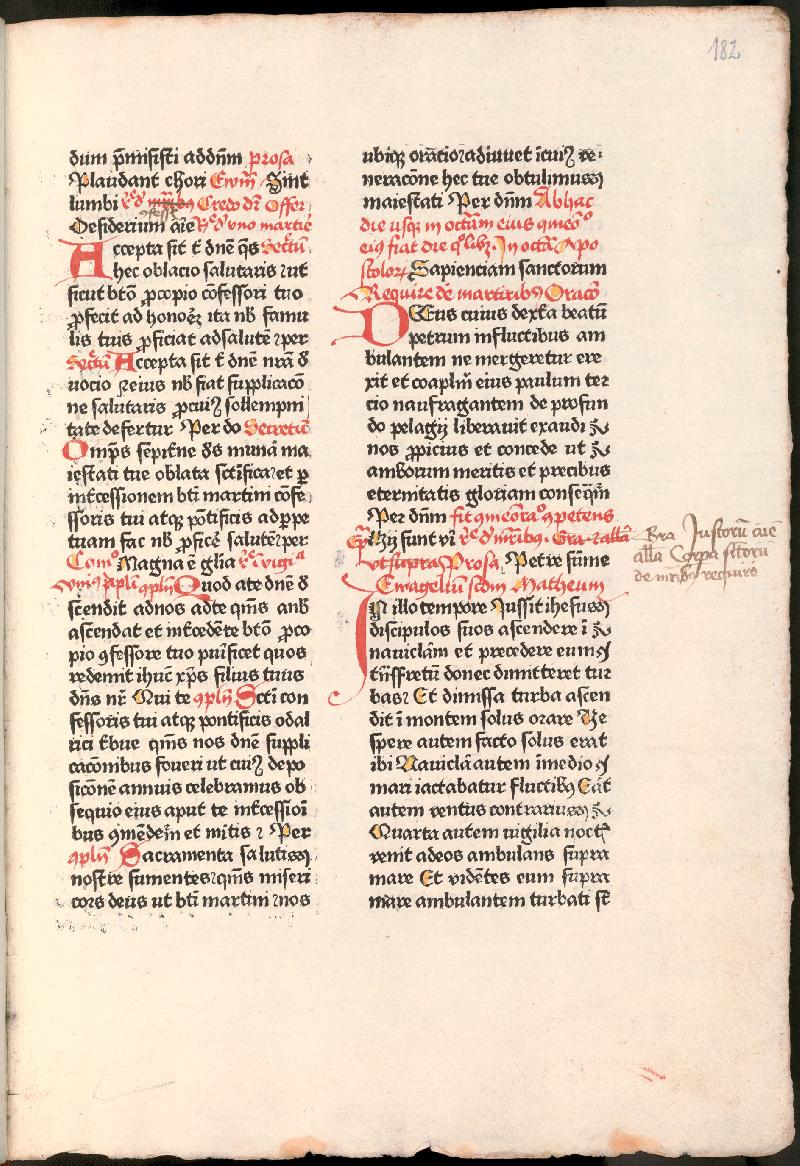 182
dum p̄misisti ad dn̄m prosa
Plaudant chori Ewm̄ Sint
lumbi Rͤ d Credo dr̄ Offer
Desideriū aīe Rͤ d vno martiē
Accepta sit t̄ dn̄e q̄s Secretū
hec oblacio salutaris ut
sicut btō p̲copio cōfessori tuo
p̲fecit ad honorē ita nb̄ famu
lis tuis p̲ficiat ad salutē per
Secretū Accepta sit t̄ dn̄e nr̄a d̄
uocio et eius nb̄ fiat supplicacō
ne salutaris p̲ cuiꝰ sollempni
tate defertur Per do Secretū
Omp̄s sempit̄ne ds̄ munā ma
iestati tue oblata sc̄tifica et p̲
int̄cessionem bt̄i martini cōfe
ssoris tui atqꝫ pōtificis ad p̲pe
tuam fac nb̄ p̲ficē salutē per
Com̄ Magna ē gl̄ia
Quod a te dn̄e d̄
scendit ad nos ad te qm̄s anb̄
ascendat et int̄cedēte btō p̲co
pio ꝯfessore tuo purificet quos
redemit ihūc xp̄s filius tuus
dn̄s nr̄ Qui te ꝯpln̄ Sct̄i con
fessoris tui atqꝫ pontificis odal
rici t̄bue qm̄s nos dn̄e suppli
cacōnibus foueri ut cuiꝰ depo
sicōnē annuis celebramus ob
sequio eius aput te int̄cessioī
bus ꝯmēdem̄ et mitis Per
ꝯpln̄ Sacramenta salutis
nostre sumentes qm̄s miseri
cors deus ut bt̄i martini nos
ubiqꝫ orāico adiuuet ī cuiꝰ ue
neracōne hec tue obtulimus
maiestati Per dn̄m Ab hac
die usqꝫ in octām eius
eiꝰ fiat die In octā Apo
stoloꝝ Sapienciam sanctorum
Require de martiribꝰ Oracō
DEus cuius dext̄a beatū
petrum in fluctibus am
bulantem ne mergeretur ere
xit et coapl̄m eius paulum ter
cio naufragantem de profun
do pelagij liberauit exaudi
nos p̲picius et concede ut
amborum meritis et precibus
eternitatis gloriam conseq̄m̄
Per dn̄m fit ꝯmeōra
Hij sunt vi Rͤ d mr̄ibꝰ Gra alla
vt supra Prosa Petre sūme
Ewagelium scdm Matheum
IN illo tempore Iussit ihesus
discipulos suos ascendere ī
nauiclām et precedere eum
tn̄s fretū donec dimitteret tur
bas Et dimissa turba ascen
dit ī montem solus orare Ve
spere autem facto solus erat
ibi Nauiclā autem ī medio
mari iactabatur fluctibꝰ Eāt
autem ventus contrarius
Quarta autem uigilia noct̄
venit ad eos ambulans supra
mare Et vidētes eum supra
mare ambulantem turbati st̄
Gra Iustorū aīe
alla Corpora sctorū
de mr̄ibꝰ requiris